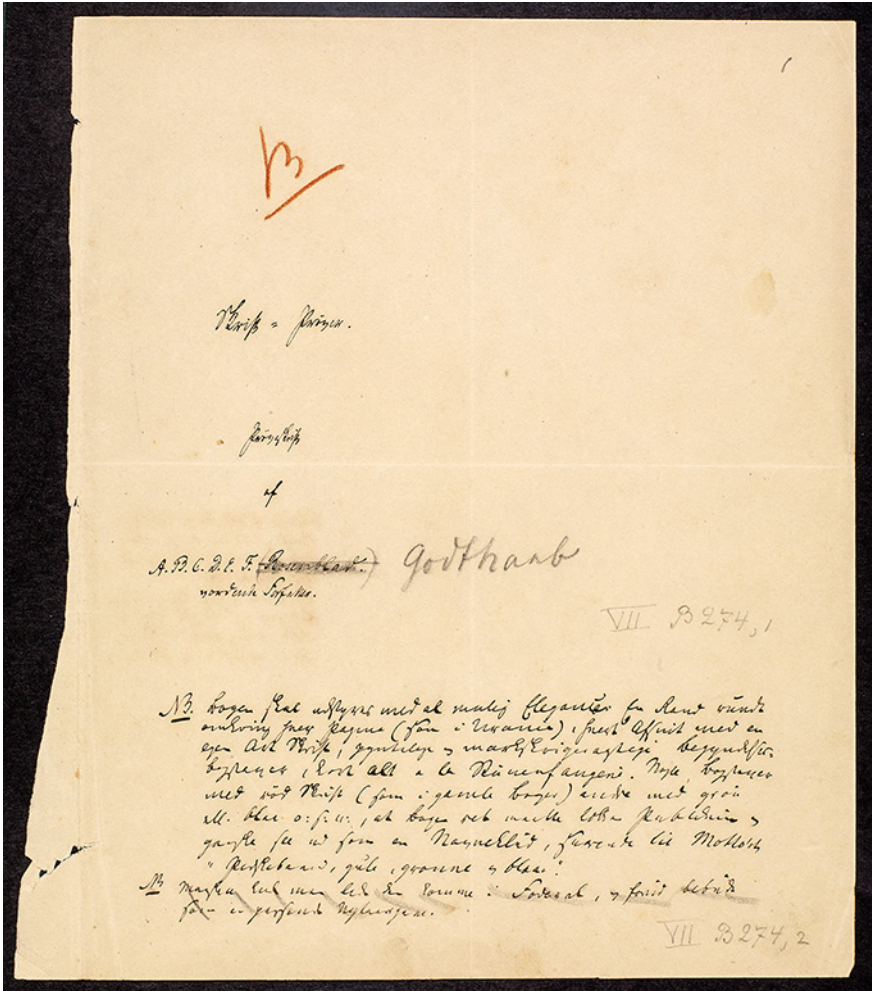 Skrift-Prøver.
Prøveskrift
af
A. B. C. D. E. F. (Rosenblad.) Godthaab
vordende Forfatter.
VII B 274, 1
NB. Bogen skal udstyres med al mulig Elegance. En Rand rundt
omkring hver Pagina (som i Urania), hvert Afsnit med en
egen Art Skrift, pyntelige og markskrigeragtige Begyndelses-
bogstaver, kort alt a la Rünenfängerei. Nogle Bogstaver
med rød Skrift (som i gamle Bøger) andre med grøn
ell. blaa o: s: v:, at Bogen ret maatte lokke Publikum og
ganske see ud som en Narreklud, svarende til Mottoet:
"Pidskebaand, gule, grønne og blaae".
NB maaskee kunde man lade den komme i Foderal, og hvad betyder
som en passende Nytaarsgave.
VII B 274, 2